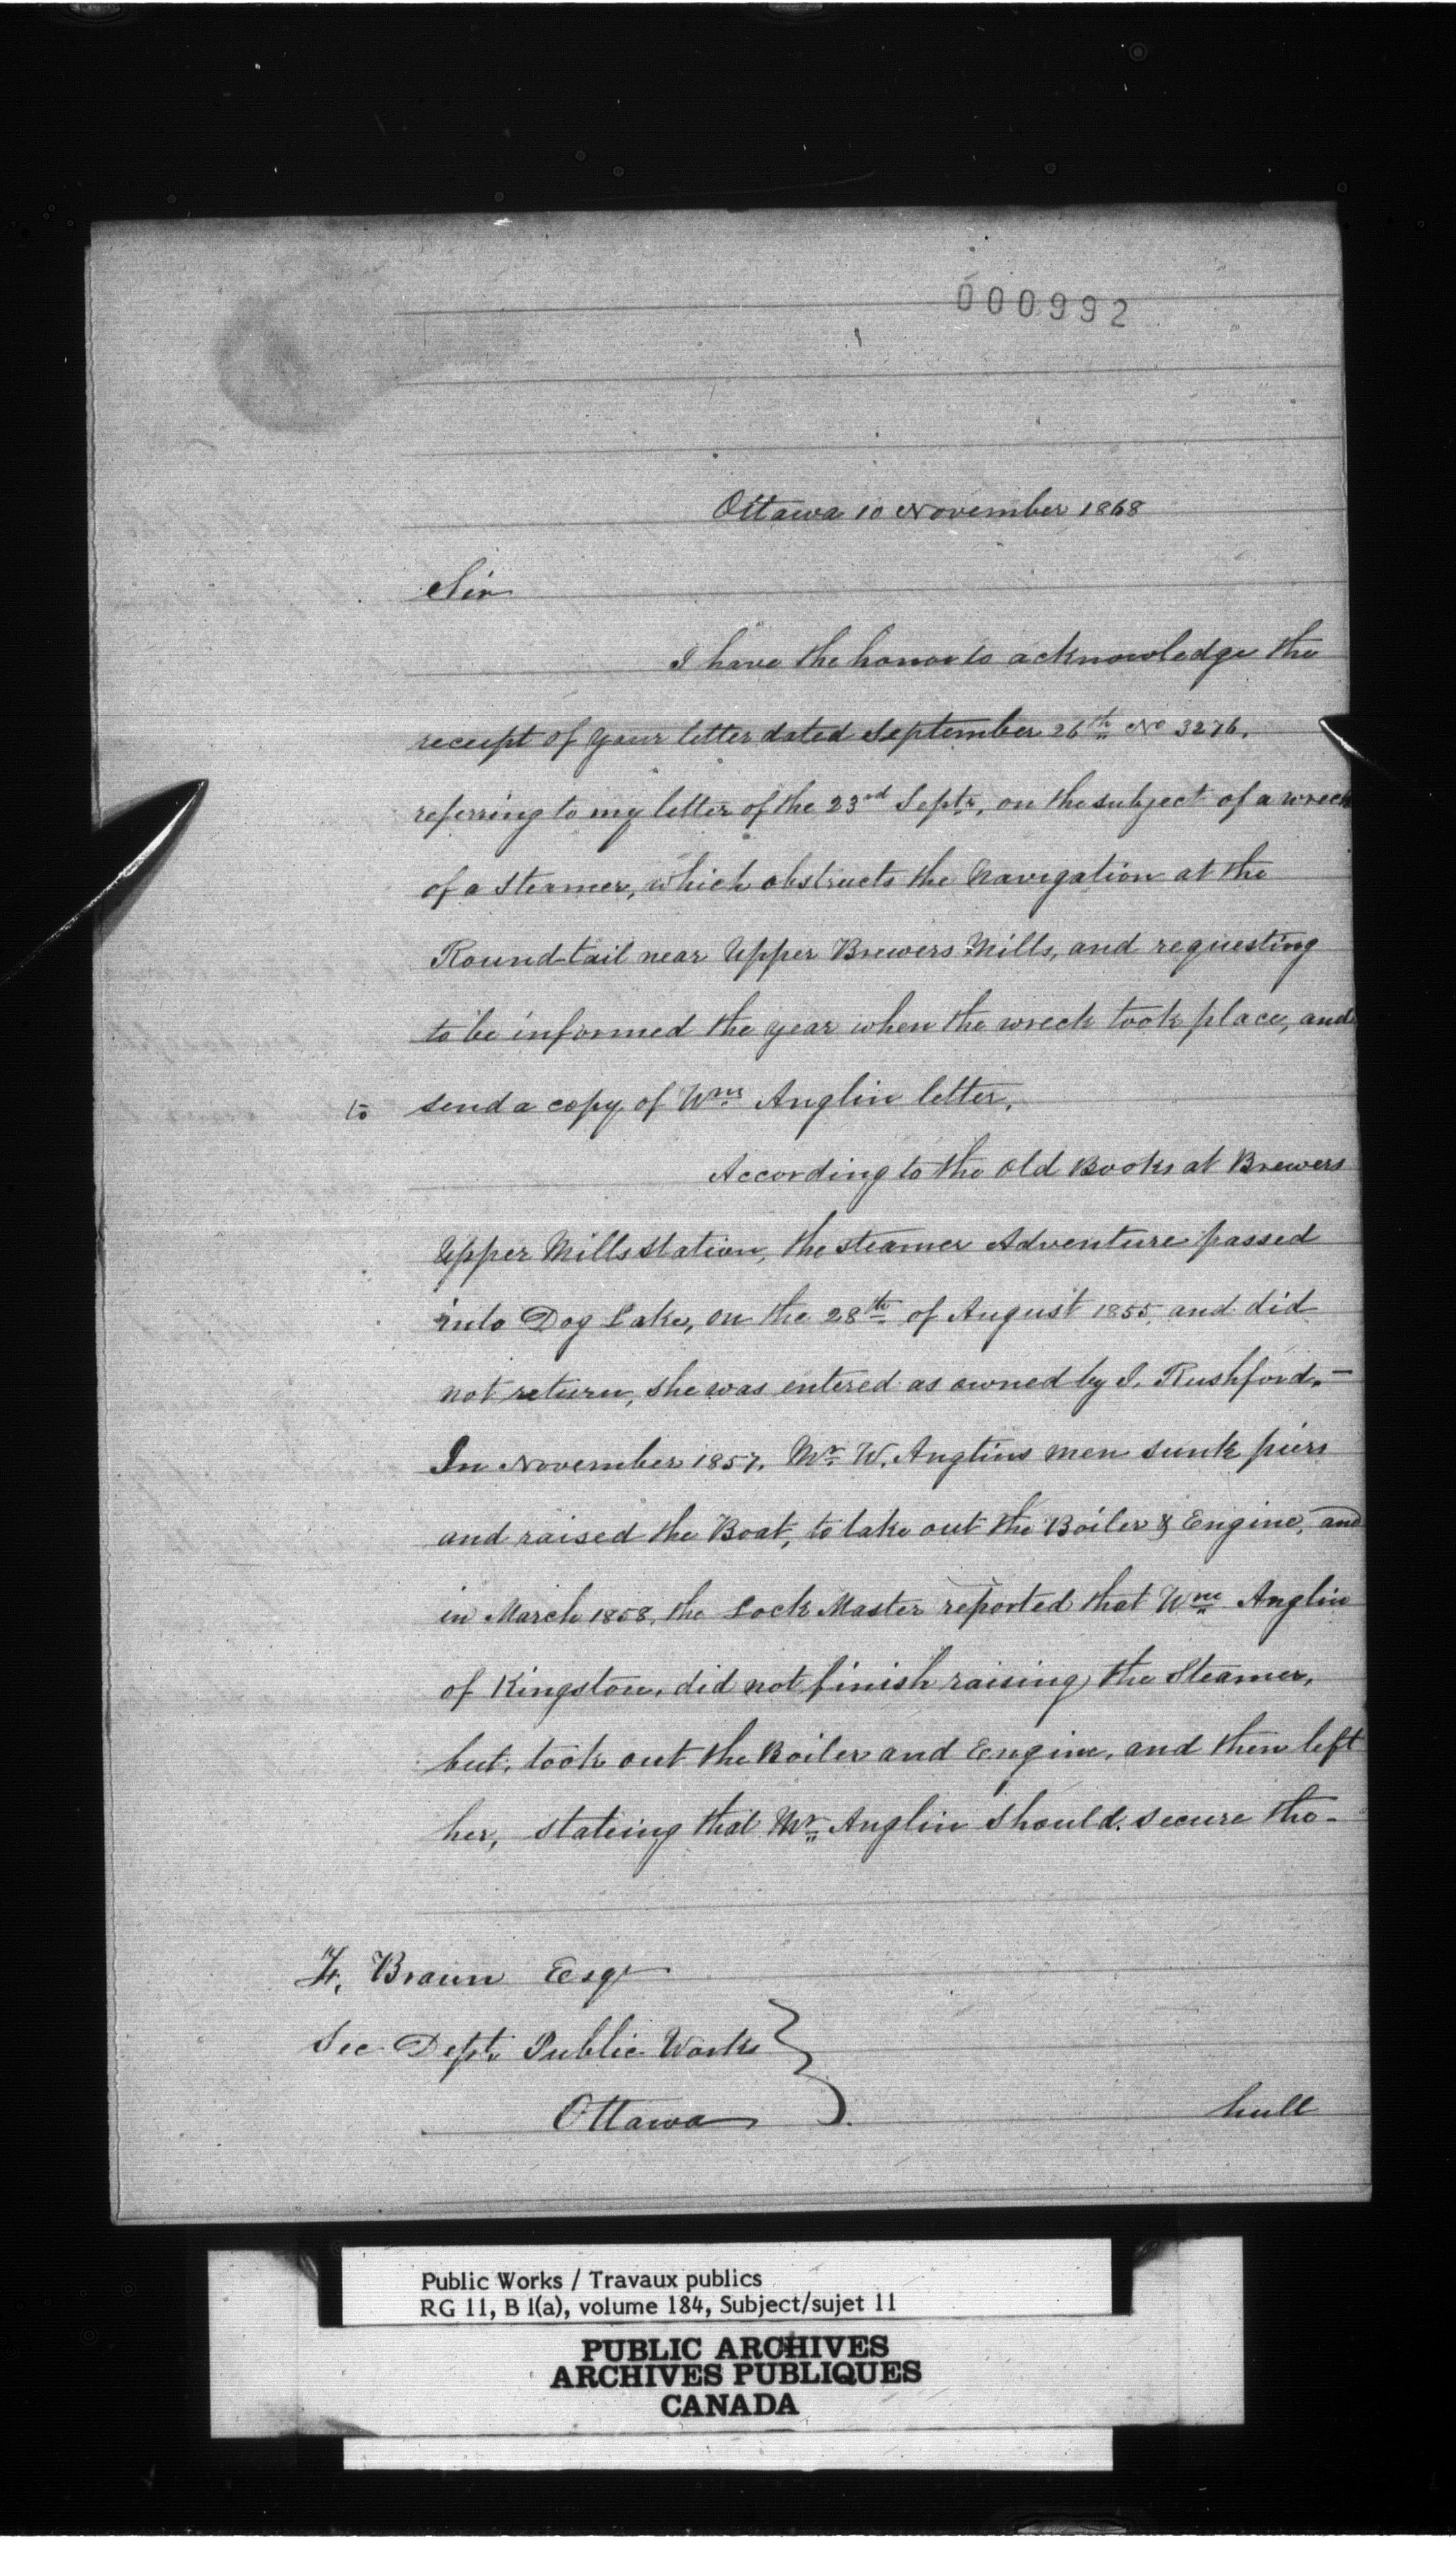 000992
Ottawa 10 November 1868
Sir
I have the honor to acknowledge the
receipt of your letter dated September 26th No 3276.
referring to my letter of the 23rd Septr, on the subject of a wreck
of a Steamer, which obstructs the Navigation at the
Round-tail near Upper Brewers Mills, and requesting
to be informed the year when the wreck took place, and
to send a copy of Wm Anglin letter.
According to the Old Books at Brewers
Upper Mills Station, the steamer Adventure passed
into Dog Lake, on the 28th of August 1855, and did
not return, she was entered as owned by J. Rushford. —
In November 1857. Mr W. Anglins men sunk piers
and raised the Boat, to take out the Boiler & Engine, and
in March 1858, the Lock Master reported that Wm Anglin
of Kingston, did not finish raising the Steamer,
but, took out the Boiler and Engine, and then left
her, stateing that Mr Anglin should secure the -
F. Braun Esqr
Sec Dept. Public Works
Ottawa
hull
Public Works / Travaux publics
RG 11, B 1(a), volume 184, Subject/sujet 11
PUBLIC ARCHIVES
ARCHIVES PUBLIQUES
CANADA